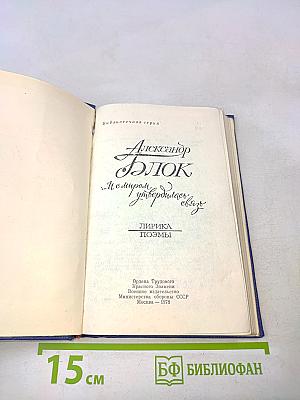 Библиотечная серия
Александр
БЛОК
„И с миром
утвердилась связь"
ЛИРИКА
ПОЭМЫ
Ордена Трудового
Красного Знамени
Военное издательство
Министерства обороны СССР
Москва — 1978
15 см
БФ БИБЛИОФАН